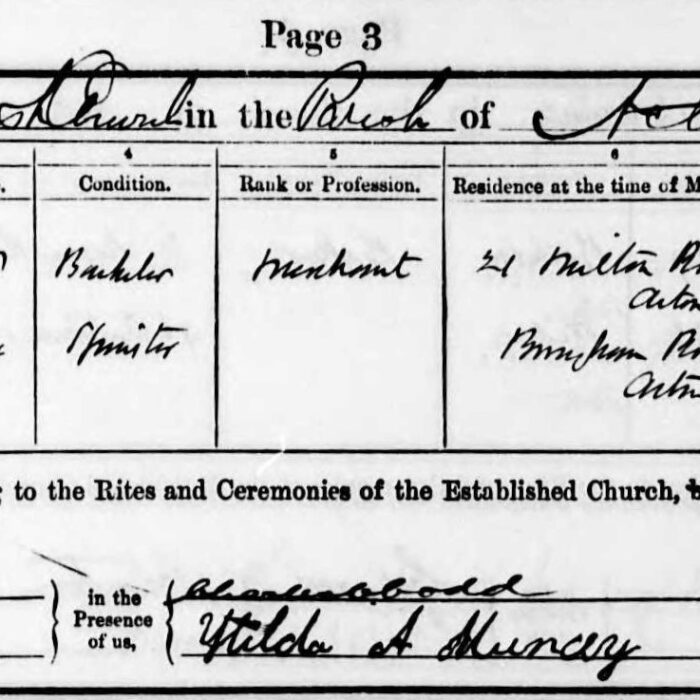 Page 3
Church in the Parish of Act
4 5 6
Condition. Rank or Profession. Residence at the time of M
Bachelor Merchant 21 Milton R
Acton
Spinster R
Acton
to the Rites and Ceremonies of the Established Church,
in the
Presence
of us,
Dodd
Hilda A Muncey